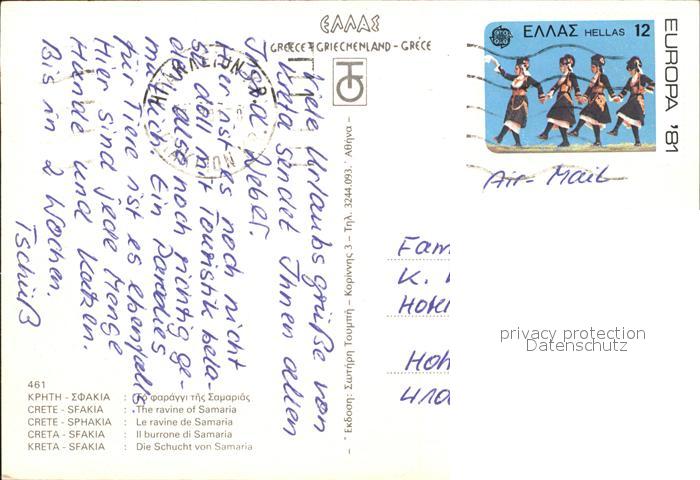 ΕΛΛΑΣ
GREECE - GRIECHENLAND - GRÈCE
ΕΛΛΑΣ HELLAS 12
EUROPA '81
Air-Mail
Viele Urlaubsgrüße von
Kreta sendet Ihnen allen
Weber.
Hier ist es noch nicht
so doll mit Touristik bela-
den also noch richtig ge-
mütlich Ein Paradies
für Tiere ist es ebenfalls.
Hier sind jede Menge
Hunde und Katzen.
Bis in 2 Wochen.
Tschüß
Fam
K.
Hotel
Hoh
410
privacy protection
Datenschutz
Ἔκδοση: Σωτήρη Τουμπῆ – Κορίννης 3 – Τηλ. 3244.093. – Ἀθῆνα –
461
ΚΡΗΤΗ - ΣΦΑΚΙΑ : Τὸ φαράγγι τῆς Σαμαριᾶς
CRETE - SFAKIA : The ravine of Samaria
CRETE - SPHAKIA : Le ravine de Samaria
CRETA - SFAKIA : Il burrone di Samaria
KRETA - SFAKIA : Die Schucht von Samaria